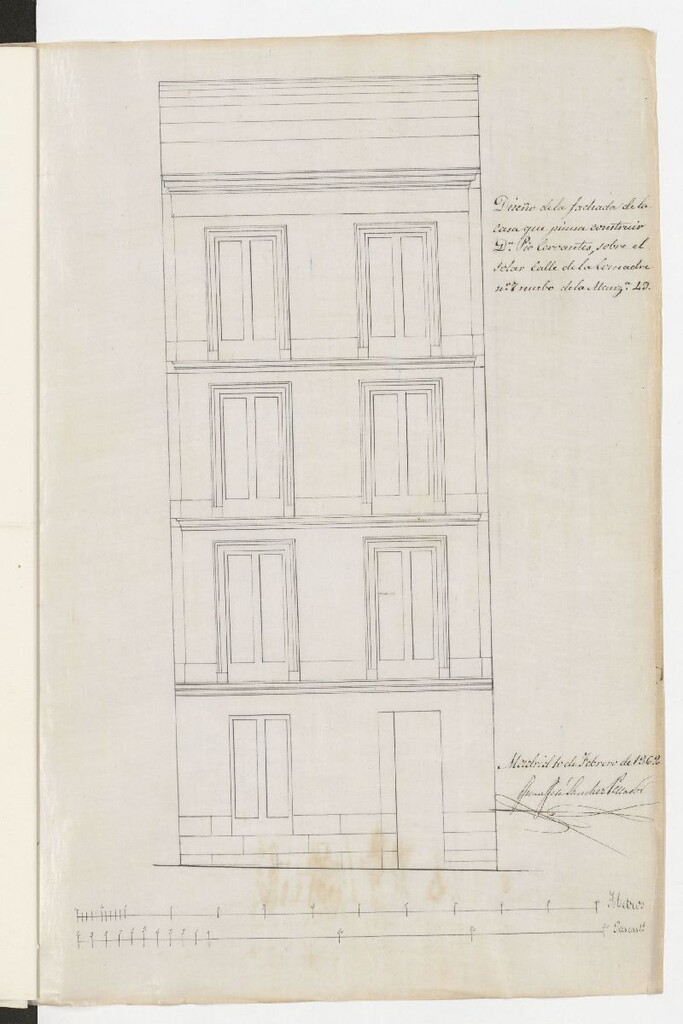 Diseño de la fachada de la
casa que piensa construir
Dn. Pio Cervantes, sobre el
solar Calle de la Comadre
nº 7 nuebo de la Manzª 43.
Madrid 10 de Febrero de 1862
José Sanchez Pescador
Metros